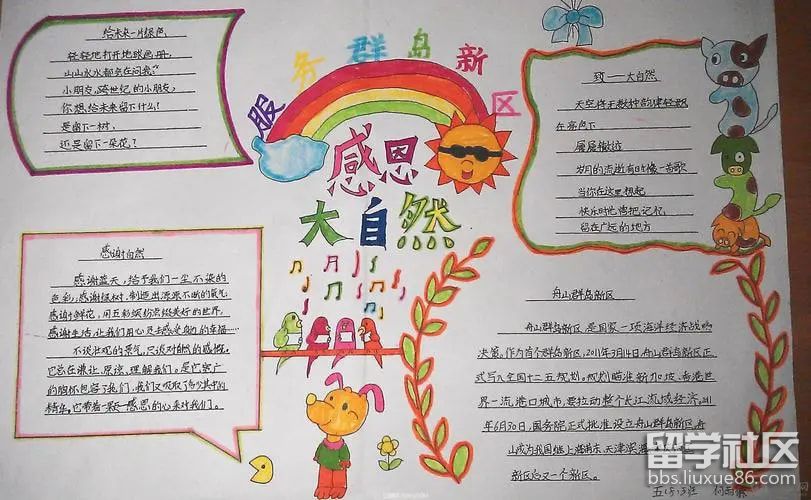 服务群岛新区
感恩
大自然
给未来一片绿色
轻轻地打开地球画册,
山山水水都会在问我?
小朋友,跨世纪的小朋友,
你想给未来留下什么?
是留下一树,
还是留下一朵花?
致——大自然
天空将无数种韵律轻题
在亮色下
展展撤远
岁月的流逝有时像一首歌
当你在这里想起
快乐时光请把记忆
留在广远的地方
感谢自然
感谢蓝天,给予我们一尘不染的
色彩;感谢绿树,制造出源源不断的氧气;
感谢鲜花,用五彩缤纷点缀美好的世界,
感谢生活,让我们用心灵去感受身边的幸福……
不谈壮观的景气,只谈对自然的感慨。
它总在谦让、原谅、理解我们。是它宽广
的胸怀包容了我们,我们又吸取了多少其中的
精华。它带着一颗感恩的心来对我们。
舟山群岛新区
舟山群岛新区,是国家一项海洋经济战略
决策。作为首个群岛新区,2011年3月14日,舟山群岛新区正
式写入全国十二五规划。规划瞄准新加坡、香港世
界一流港口城市,要拉动整个长江流域经济。2011
年6月30日,国务院正式批准设立舟山群岛新区,舟
山成为我国继上海浦东、天津滨海
新区后又一个新区。
五(5)班 何雨
留学社区
bbs.liuxue86.com